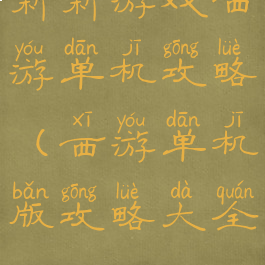 新新游戏西
yóu dān jī gōng lüè
游单机攻略
xī yóu dān jī
(西游单机
bǎn gōng lüè dà quán
版攻略大全